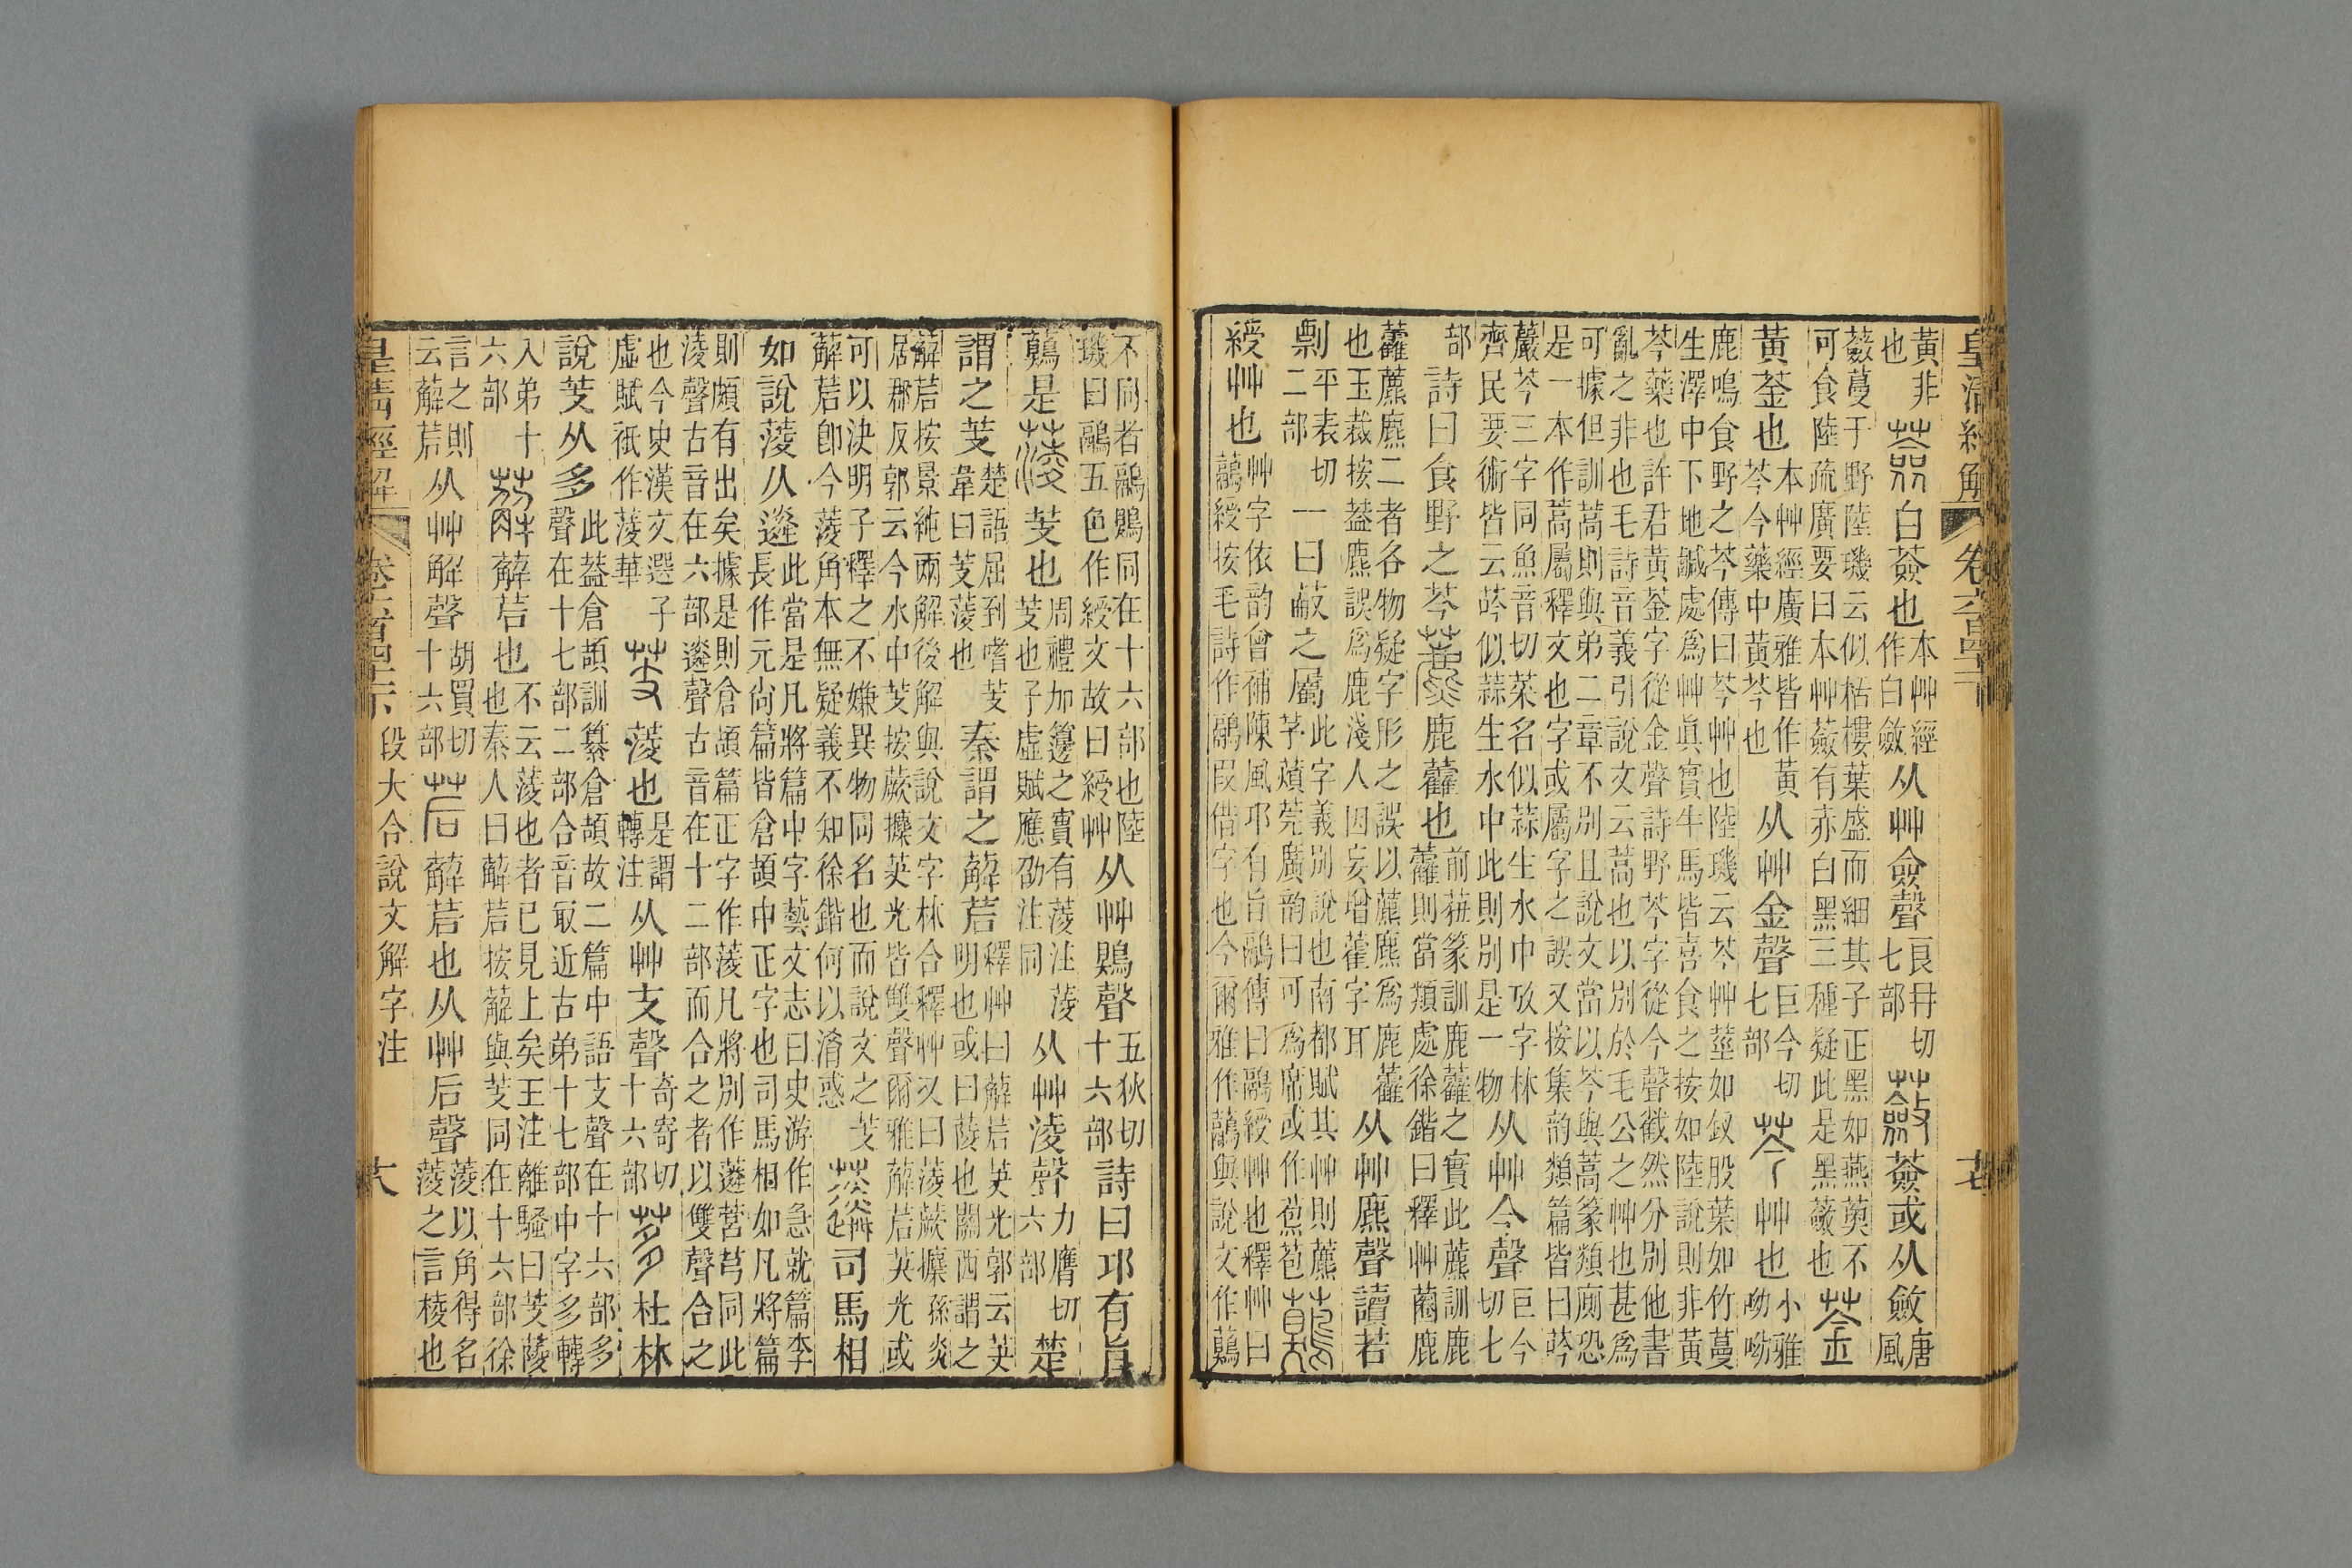 皇清經解 卷六百四十一 十七
黃非
也
蘞白薟也
本艸經
作白蘞
从艸僉聲
良冄切
七部
蘞薟或从斂
唐
風
蘞蔓于野陸璣云似栝樓葉盛而細其子正黑如燕薁不
可食陸疏廣要曰本艸蘞有赤白黑三種疑此是黑蘞也
菳
黃菳也
本艸經廣雅皆作黃
芩今藥中黃芩也
从艸金聲
巨今切
七部
芩艸也
小雅
呦呦
鹿鳴食野之芩傳曰芩艸也陸璣云芩艸莖如釵股葉如竹蔓
生澤中下地鹹處爲艸眞實牛馬皆喜食之按如陸說則非黃
芩藥也許君黃菳字從金聲詩野芩字從今聲截然分別他書
亂之非也毛詩音義引說文云蒿也以別於毛公之艸也甚爲
可據但訓蒿則與弟二章不別且說文當以芩與蒿篆類廁恐
是一本作蒿屬釋文也字或屬字之誤又按集韵類篇皆曰荶
芩三字同魚音切菜名似蒜生水中攷字林
齊民要術皆云荶似蒜生水中此則別是一物
从艸今聲
巨今
切七
部
詩曰食野之芩藨鹿藿也
前莥篆訓鹿藿之實此藨訓鹿
藿則當類處徐鍇曰釋艸蔨鹿
藿藨麃二者各物疑字形之誤以藨麃爲鹿藿
也玉裁按葢麃誤爲鹿淺人因妄增藿字耳
从艸麃聲讀若
剽
平表切
二部
一曰蔽之屬
此字義別說也南都賦其艸則藨
芧薠莞廣韵曰可爲席或作苞
鷊
綬艸也
艸字依韵會補陳風邛有旨鷊傳曰鷊綬艸也釋艸曰
虉綬按毛詩作鷊叚借字也今爾雅作虉與說文作鶪
不同者鷊鶪同在十六部也陸
璣曰鷊五色作綬文故曰綬艸
从艸鶪聲
五狄切
十六部
詩曰邛有旨
鶪是蔆芰也
周禮加籩之實有蔆注蔆
芰也子虛賦應劭注同
从艸淩聲
力膺切
六部
楚
謂之芰
楚語屈到嗜芰
韋曰芰蔆也
秦謂之薢茩
釋艸曰薢茩英光郭云英
明也或曰蔆也關西謂之
薢茩按景純兩解後解與說文字林合釋艸又曰蔆蕨攗孫炎
居郡反郭云今水中芰按蕨攗英光皆雙聲爾雅薢茩英光或
可以決明子釋之不嫌異物同名也而說文之芰
薢茩卽今蔆角本無疑義不知徐鍇何以淆惑
䔖司馬相
如說蔆从遴
此當是凡將篇中字藝文志曰史游作急就篇李
長作元尙篇皆倉頡中正字也司馬相如凡將篇
則頗有出矣據是則倉頡篇正字作蔆凡將別作䔖營芎同此
淩聲古音在六部遴聲古音在十二部而合之者以雙聲合之
也今史漢文選子
虛賦衹作蔆華
芰蔆也
是謂
轉注
从艸支聲
奇寄切
十六部
茤杜林
說芰从多
此葢倉頡訓纂倉頡故二篇中語支聲在十六部多
聲在十七部二部合音冣近古弟十七部中字多轉
入弟十
六部
薢薢茩也
不云蔆也者已見上矣王注離騷曰芰蔆
也秦人曰薢茩按薢與芰同在十六部徐
言之則
云薢茩
从艸解聲
胡買切
十六部
茩薢茩也从艸后聲
蔆以角得名
蔆之言棱也
皇清經解 卷六百四十一 段大令說文解字注 十八